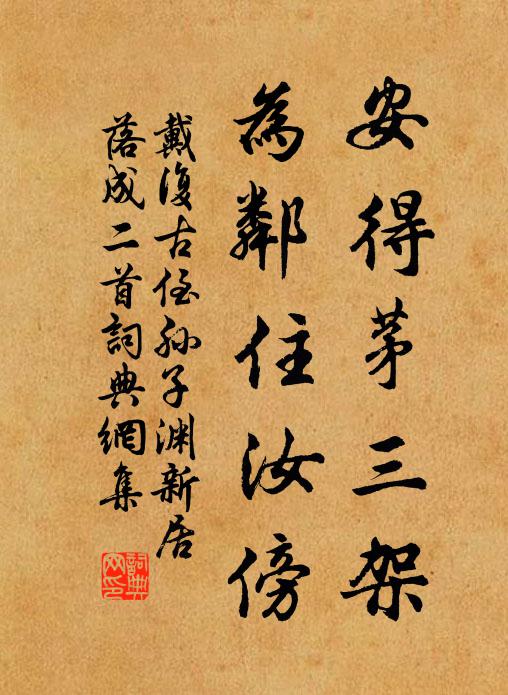 安得茅三架
為鄰住汝傍
戴復古侄孫子淵新居
落成二首詞典網集
詞典
网印